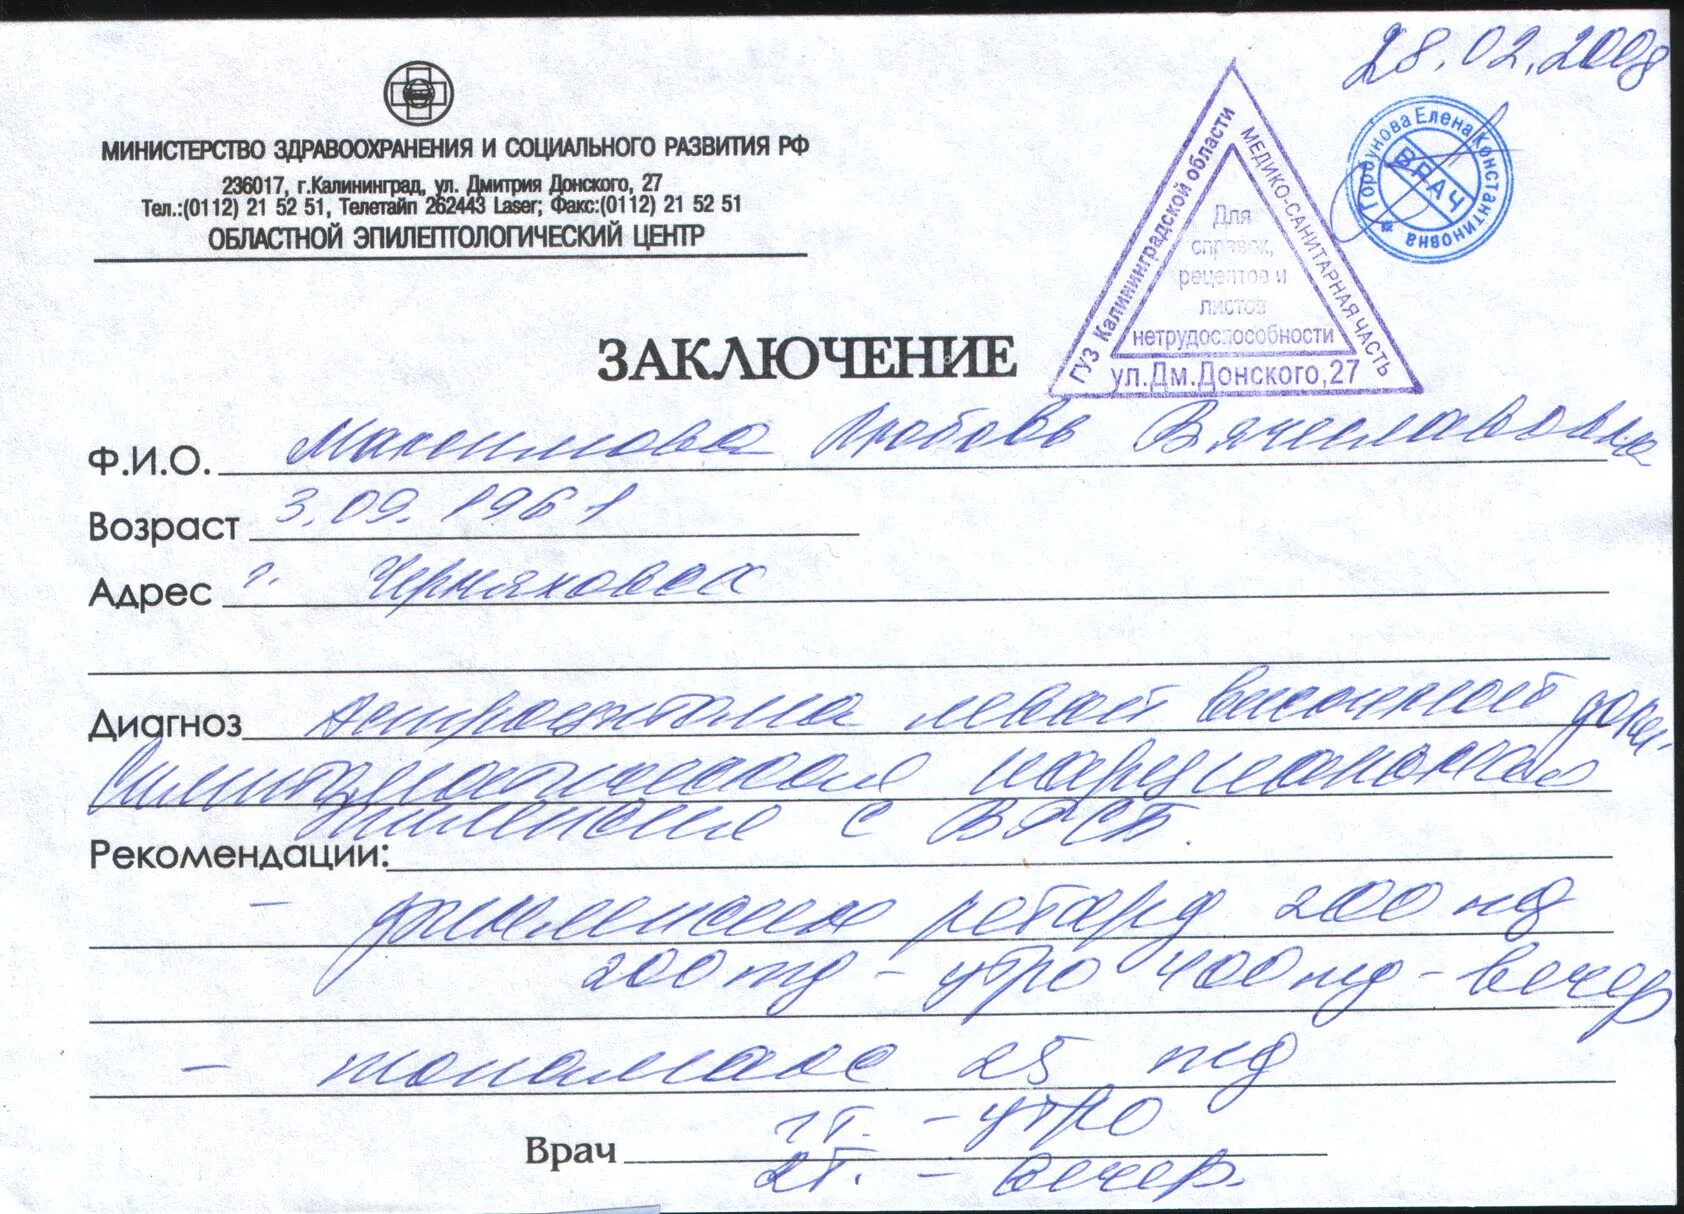 28.02.2008
МИНИСТЕРСТВО ЗДРАВООХРАНЕНИЯ И СОЦИАЛЬНОГО РАЗВИТИЯ РФ
236017, г.Калининград, ул. Дмитрия Донского, 27
Тел.:(0112) 21 52 51, Телетайп 262443 Laser; Факс:(0112) 21 52 51
ОБЛАСТНОЙ ЭПИЛЕПТОЛОГИЧЕСКИЙ ЦЕНТР
ГУЗ Калининградской области
МЕДИКО-САНИТАРНАЯ ЧАСТЬ
Для
справок,
рецептов и
листов
нетрудоспособности
ул.Дм.Донского,27
Горбунова Елена Константиновна
ВРАЧ
ЗАКЛЮЧЕНИЕ
Ф.И.О. Максимова Любовь Вячеславовна
Возраст 3.09.1961
Адрес г. Черняховск
Диагноз Астроцитома левой височной доли.
Симптоматическая парциальная
эпилепсия с ВГСП.
Рекомендации:
- финлепсин ретард 200 мг
200 mg - утро 400 mg - вечер
- топамакс 25 mg
1т. - утро
Врач 2т. - вечер.